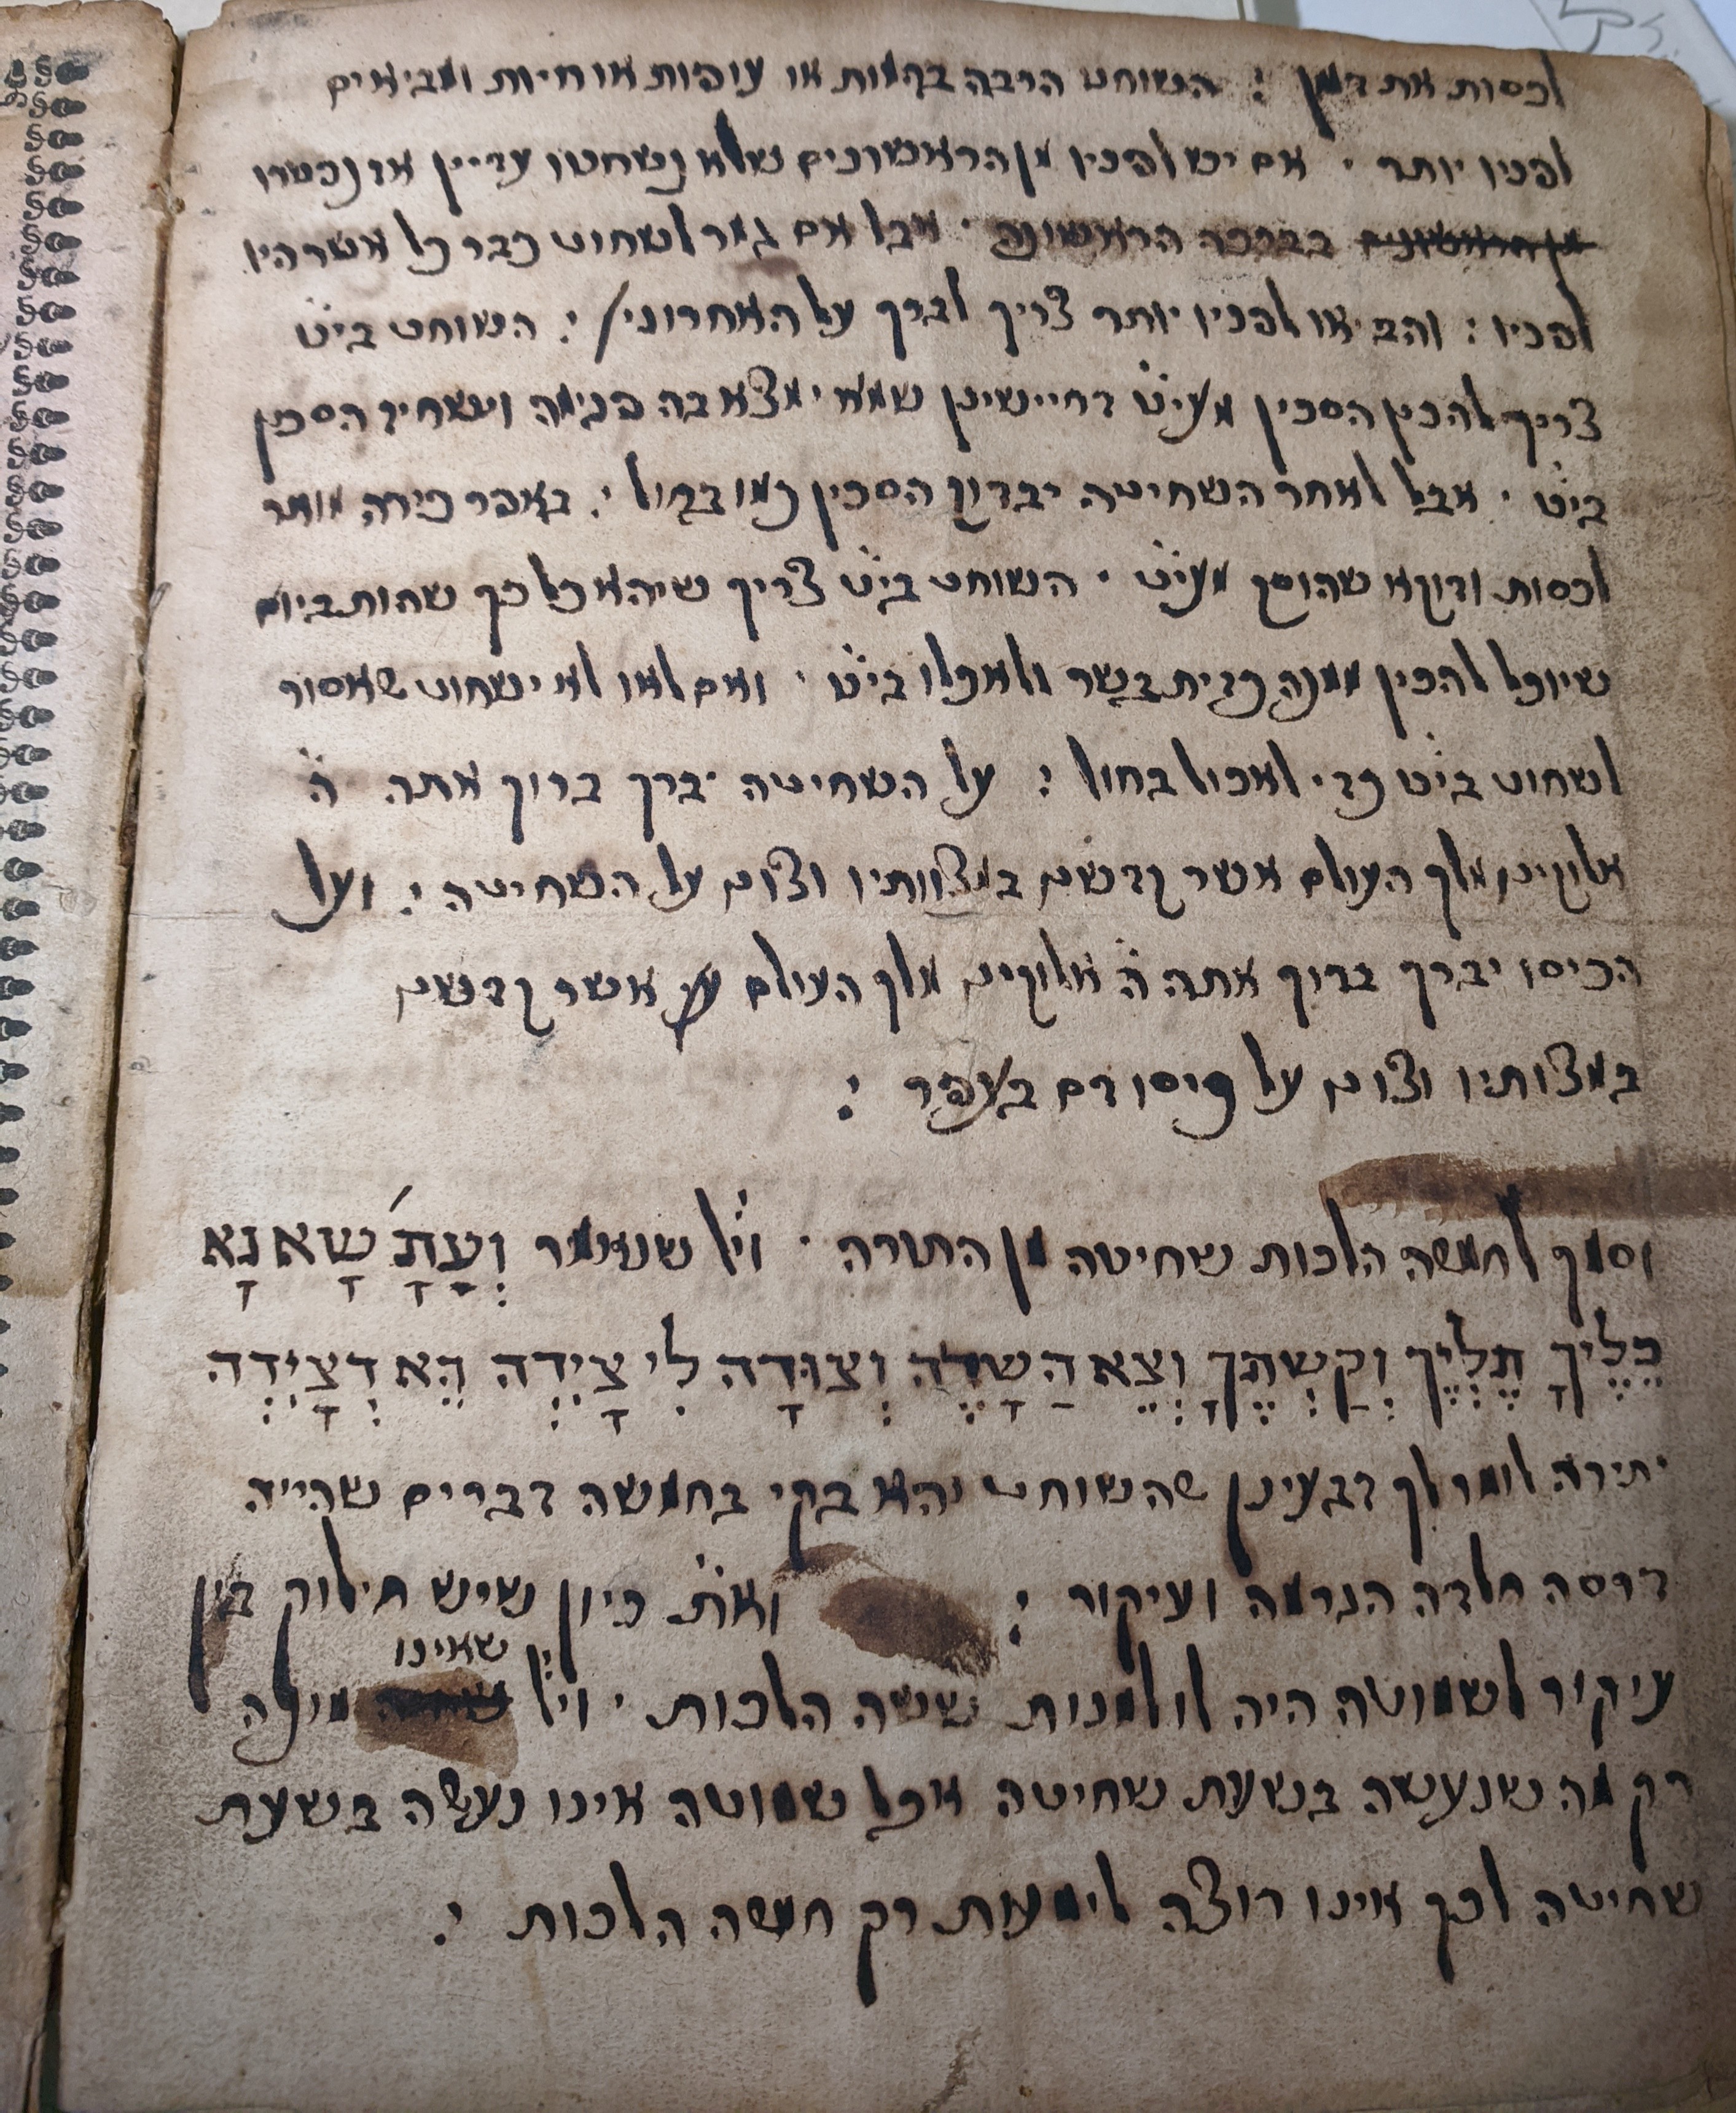 לכסות את דמן : השוחט הרבה בהמות או עופות או חיות ומביאים
לפניו יותר . אם יש לפניו מן הראשונים שלא נשחטו עדיין אז נפטרו
מן הראשונים בברכה הראשונה . אבל אם גמר לשחוט כבר כל אשר היו
לפניו : והביאו לפניו יותר צריך לברך על האחרוני/ : השוחט בי"ט
צריך להכין הסכין מעי"ט דחיישינן שמא ימצא בה פגימה וישחיז הסכין
בי"ט . אבל לאחר השחיטה יבדוק הסכין כמו בחול : באפר כירה מותר
לכסות ודוקא שהוסק מעי"ט . השוחט בי"ט צריך שיהא כל כך שהות ביום
שיוכל להכין ממנה כזית בשר ולאכלו בי"ט . ואם לאו לא ישחוט שאסור
לשחוט בי"ט כדי לאכול בחול : על השחיטה יברך ברוך אתה ה'
אלוקינו מלך העולם אשר קדשנו במצוותיו וצונו על השחיטה : ועל
הכיסוי יברך ברוך אתה ה' אלוקינו מלך העולם אשר קדשנו
במצותיו וצונו על כיסוי דם בעפר :
וסמך לחמשה הלכות שחיטה מן התורה . וי"ל שנאמר וְעַתָּ' שָׂא נָא
כֵלֶיךָ תֶּלְיְךָ וְקַשְׁתֶּךָ וְצֵא הַשָּׂדֶה וְצוּדָה לִי צָיְדָה הֵא דְצָיְדָה
יתירה לומר לך דבעינן שהשוחט יהא בקי בחמשה דברים שהייה
דרסה חלדה הגרמה ועיקור : וא"ת כיון שיש חילוק בין
שאינו
עיקור לשמוטה היה לו למנות ששה הלכות . וי"ל מונה
רק מה שנעשה בשעת שחיטה אבל שמוטה אינו נעשה בשעת
שחיטה לכך אינו רוצה למנות רק חמשה הלכות :